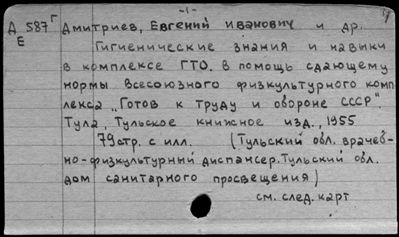 -1-
4
Д 587 г Дмитриев, Евгений Иванович и др.
Е
Гигиенические знания и навыки
в комплексе ГТО. В помощь сдающему
нормы Всесоюзного физкультурного комп
лекса „Готов к труду и обороне СССР".
Тула, Тульское книжное изд., 1955
79 стр. с илл. (Тульский обл. врачеб-
но-физкультурный диспансер. Тульский обл.
дом санитарного просвещения)
см. след. карт